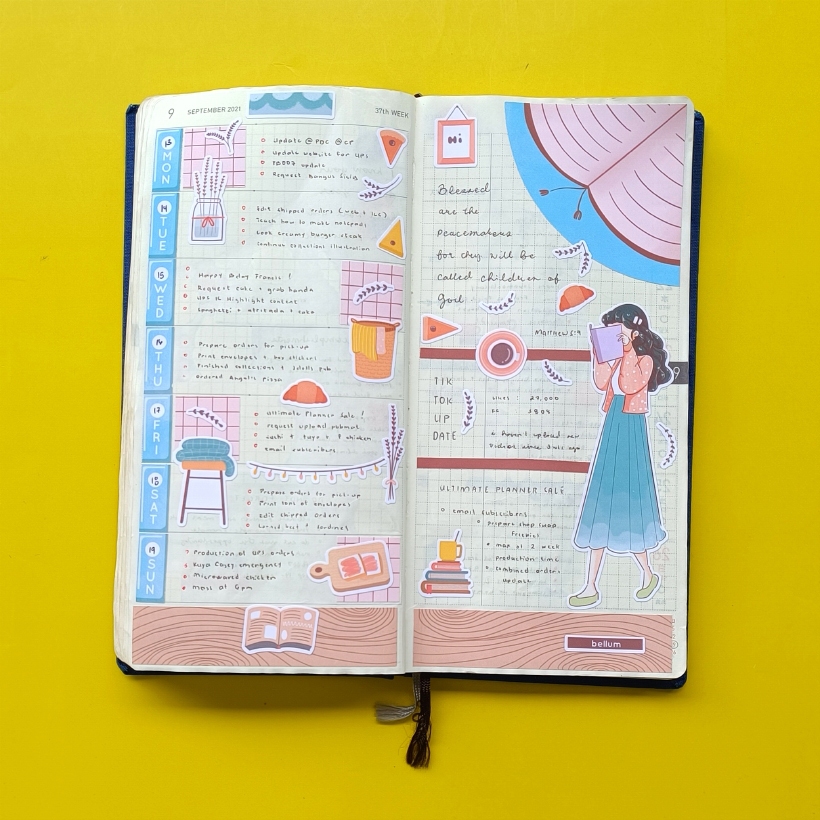 9 SEPTEMBER 2021
37th WEEK
13 MON
Update @ PDC @ CF
Update website for UPS
update
Request Bangus
14 TUE
Edit chipped orders (week 1 +
Teach how to make notepads
Cook creamy burger steak
Continue collections illustration
15 WED
Happy Bday Francis!
Request cake + grab handa
Highlight content
Spaghetti + + cake
16 THU
Prepare orders for pick-up
Print envelopes + box stickers
Finished collections +
ordered Angel's pizza
17 FRI
Ultimate Planner Sale!
request upload
Sushi + + chicken
email subscribers
18 SAT
Prepare orders for pick-up
Print tons of envelopes
Edit chipped orders
Corned beef + Sardines
19 SUN
Production of UPS orders
Kuya Casey emergency
Microwaved chicken
Mass at 6pm
Hi
Blessed
are the
peacemakers
for they will be
called children of
God.
MATTHEW 5:9
TIK
TOK
UP
DATE
Likes 29,000
808
Haven't uploaded new
videos since days ago
ULTIMATE PLANNER SALE
email subscribers
prepare shop swap
Freebies
map of 2 week
production time
combined orders
update
bellum